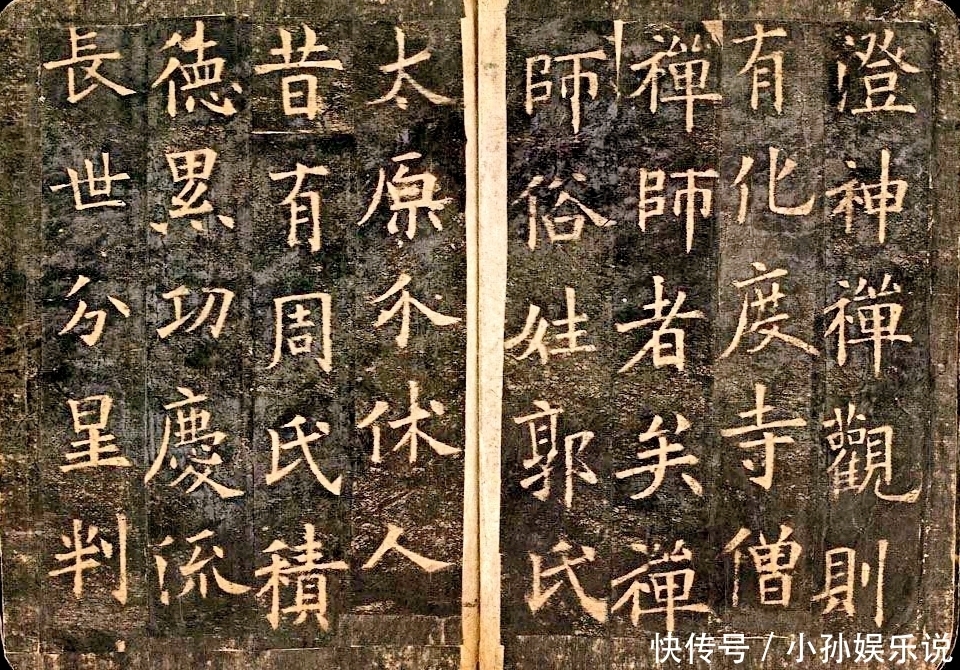 澄神禪觀則
有化度寺僧
禪師者矣禪
師俗姓郭氏
太原介休人
昔有周氏積
德累功慶流
長世分星判
快传号 / 小孙娱乐说